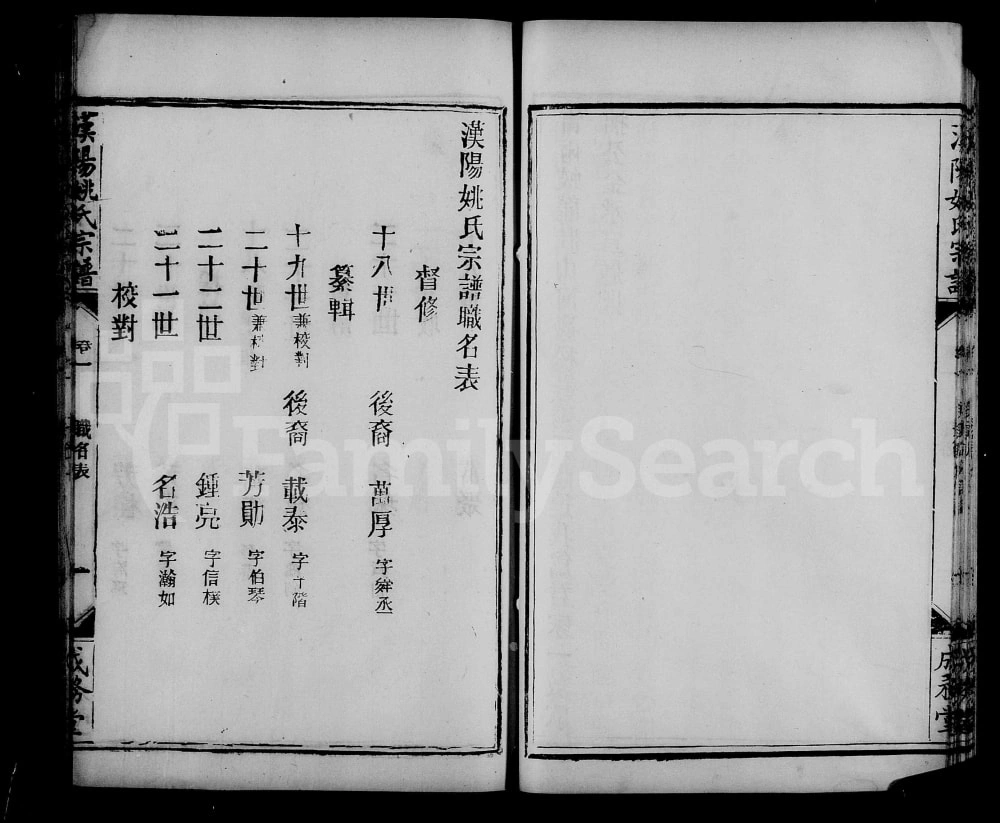 漢陽姚氏宗譜職名表
督修
十八世 後裔 萬厚 字舜丞
纂輯
十九世 兼校對 後裔 載泰 字階
二十世 兼校對 芳勛 字伯琴
二十二世 鍾亮 字信樸
二十一世 名浩 字瀚如
校對
漢陽姚氏宗譜 卷一 職名表 一 成務堂
漢陽姚氏宗譜 成務堂
FamilySearch